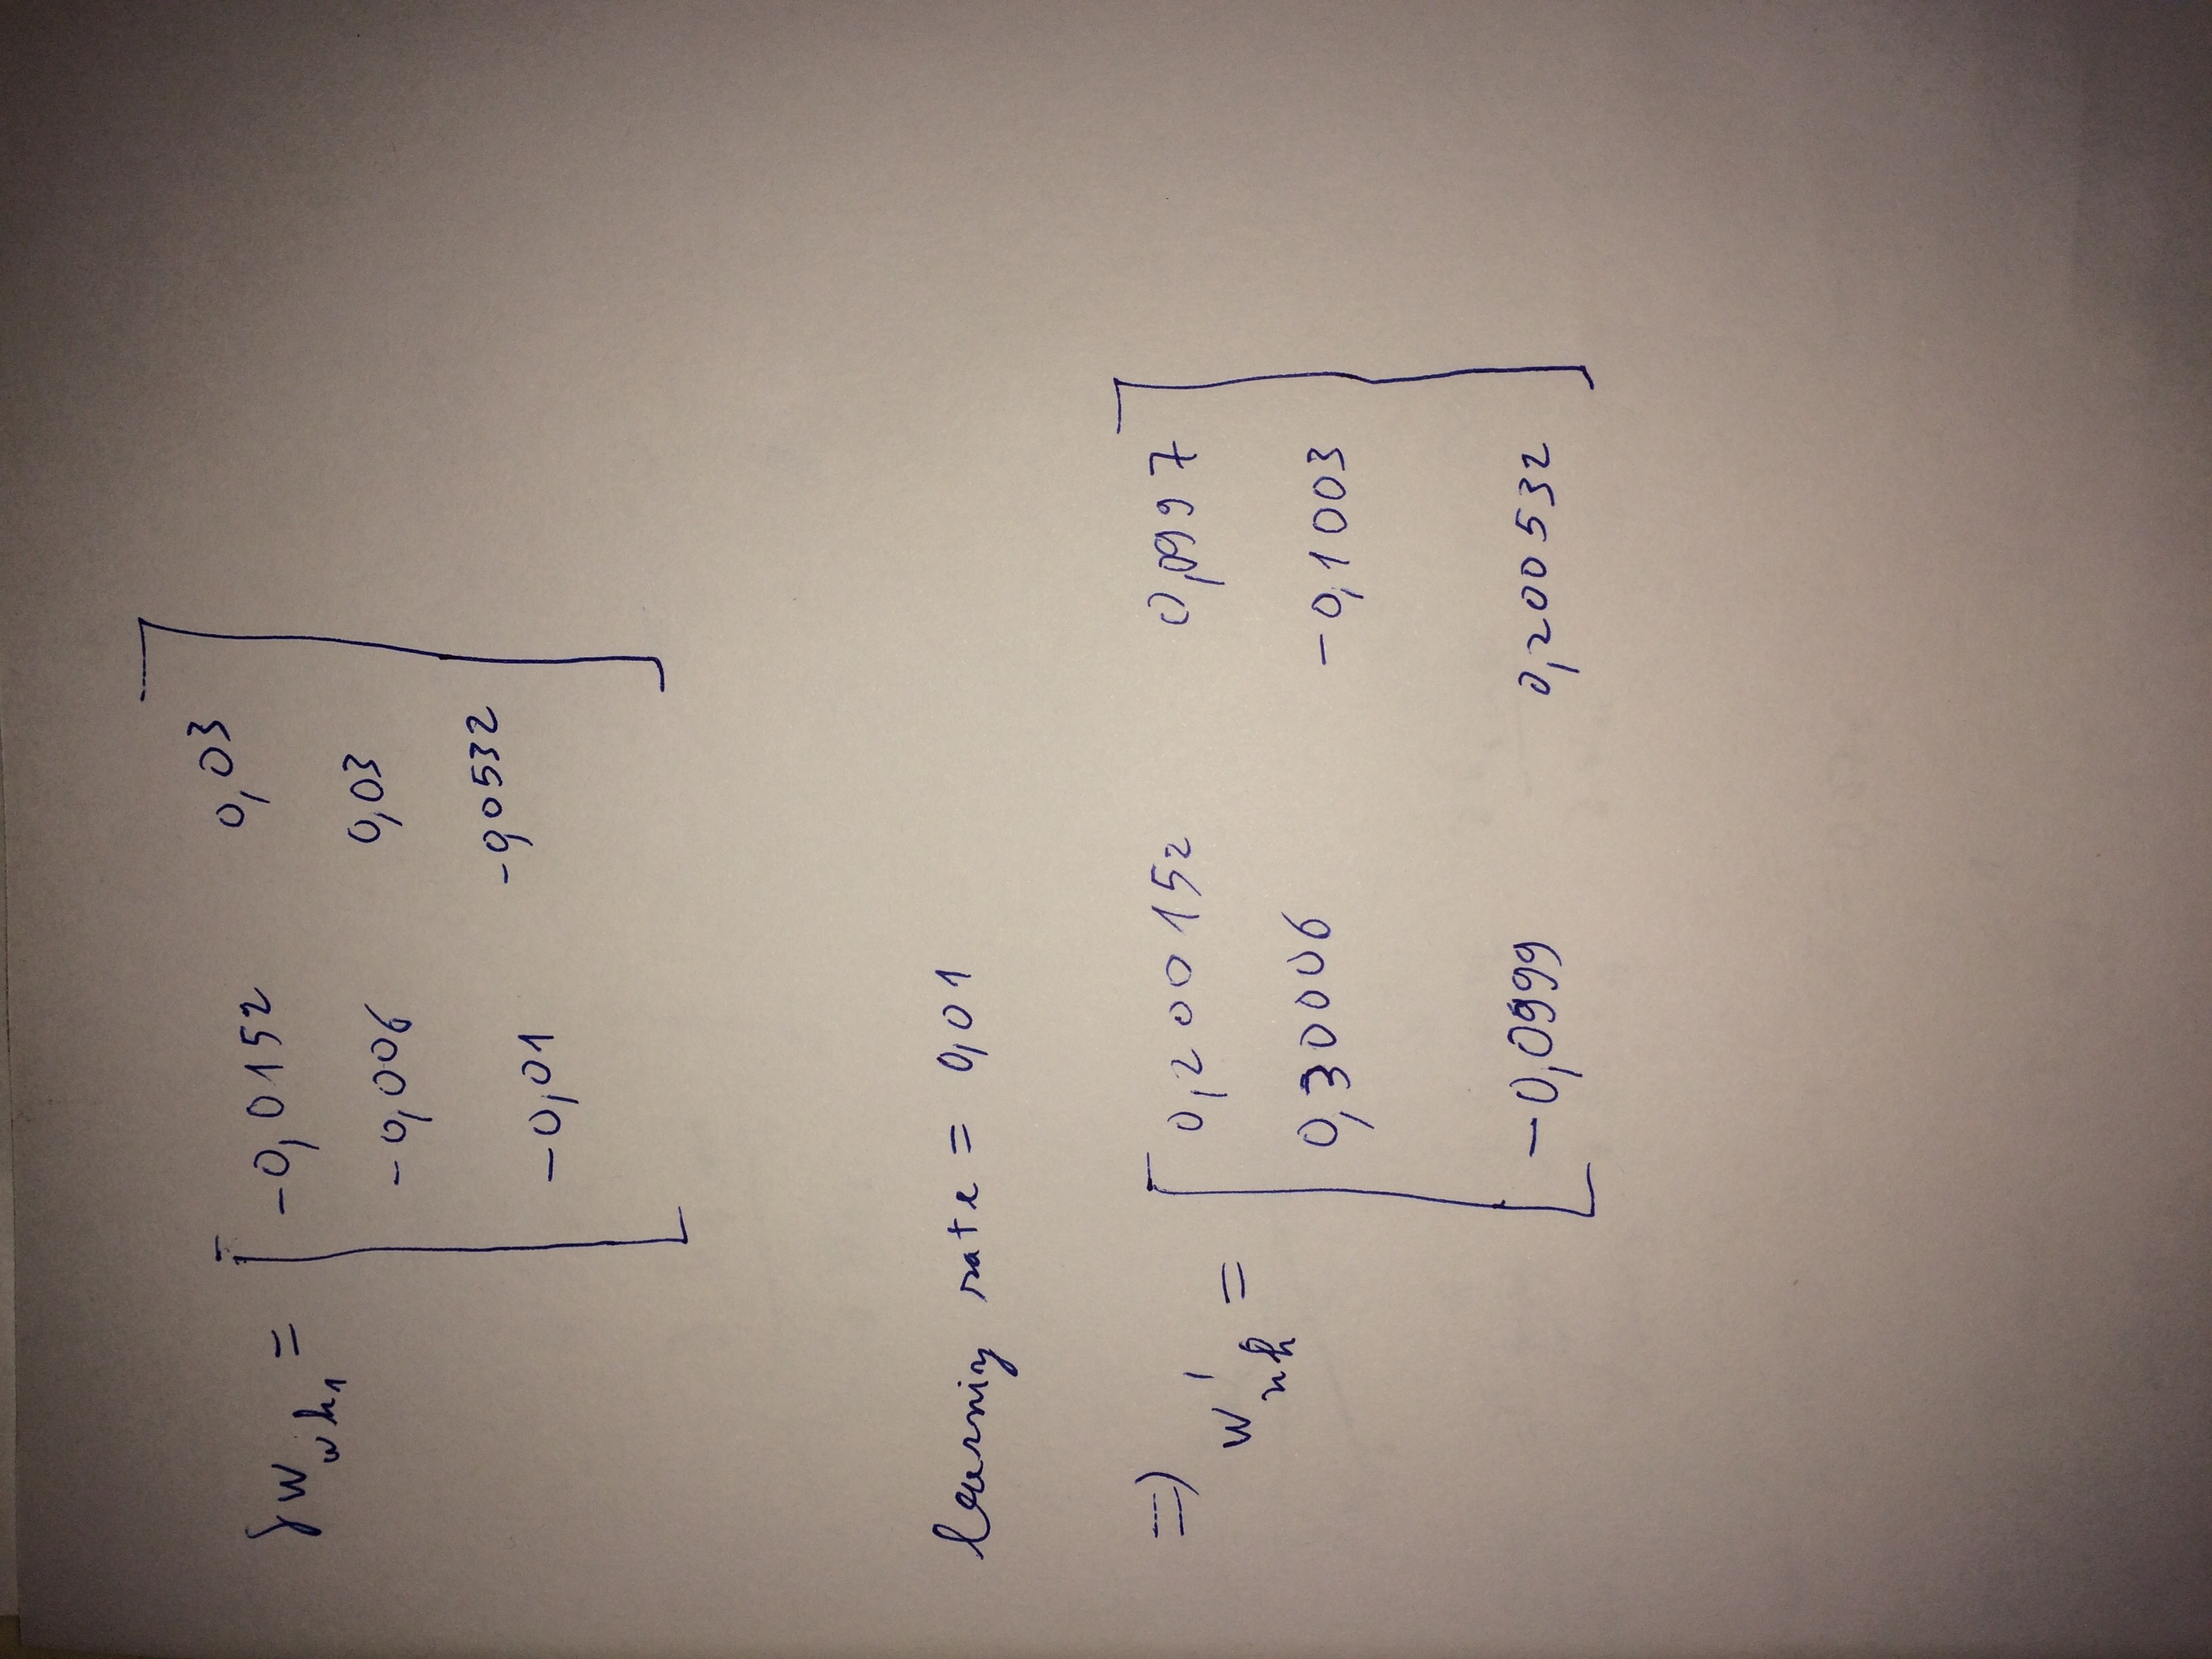 δw_wh1 = [ -0,0152 0,03
-0,006 0,03
-0,01 -0,0532 ]
learning rate = 0,01
=> w'_xh = [ 0,200152 0,0997
0,30006 -0,1003
-0,0999 0,200532 ]